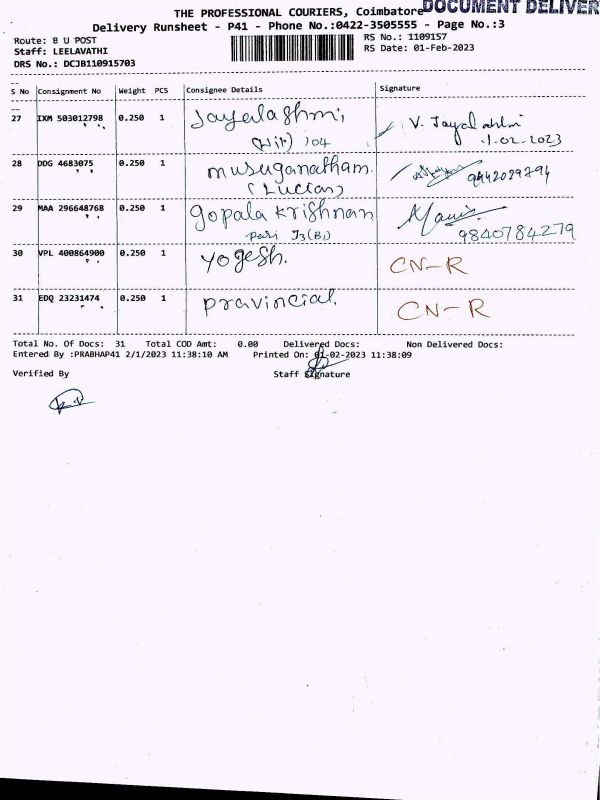 THE PROFESSIONAL COURIERS, Coimbatore DOCUMENT DELIVER
Delivery Runsheet - P41 - Phone No.:0422-3505555 - Page No.:3
Route: B U POST
RS No.: 1109157
Staff: LEELAVATHI
RS Date: 01-Feb-2023
DRS No.: DCJB110915703
S No Consignment No Weight PCS Consignee Details Signature
27 IXM 503012798 0.250 1 Jayalashmi V. Jayalakshmi
(Hit) 104 1.02.2023
28 DDG 4683075 0.250 1 musuganatham. 9442029794
(Luctan)
29 MAA 296648768 0.250 1 gopala krishnan
Pari J3(B1) 9840784279
30 VPL 400864900 0.250 1 Yogesh. CN-R
31 EDQ 23231474 0.250 1 pravincial. CN-R
Total No. Of Docs: 31 Total COD Amt: 0.00 Delivered Docs: Non Delivered Docs:
Entered By :PRABHAP41 2/1/2023 11:38:10 AM Printed On: 01-02-2023 11:38:09
Verified By Staff Signature